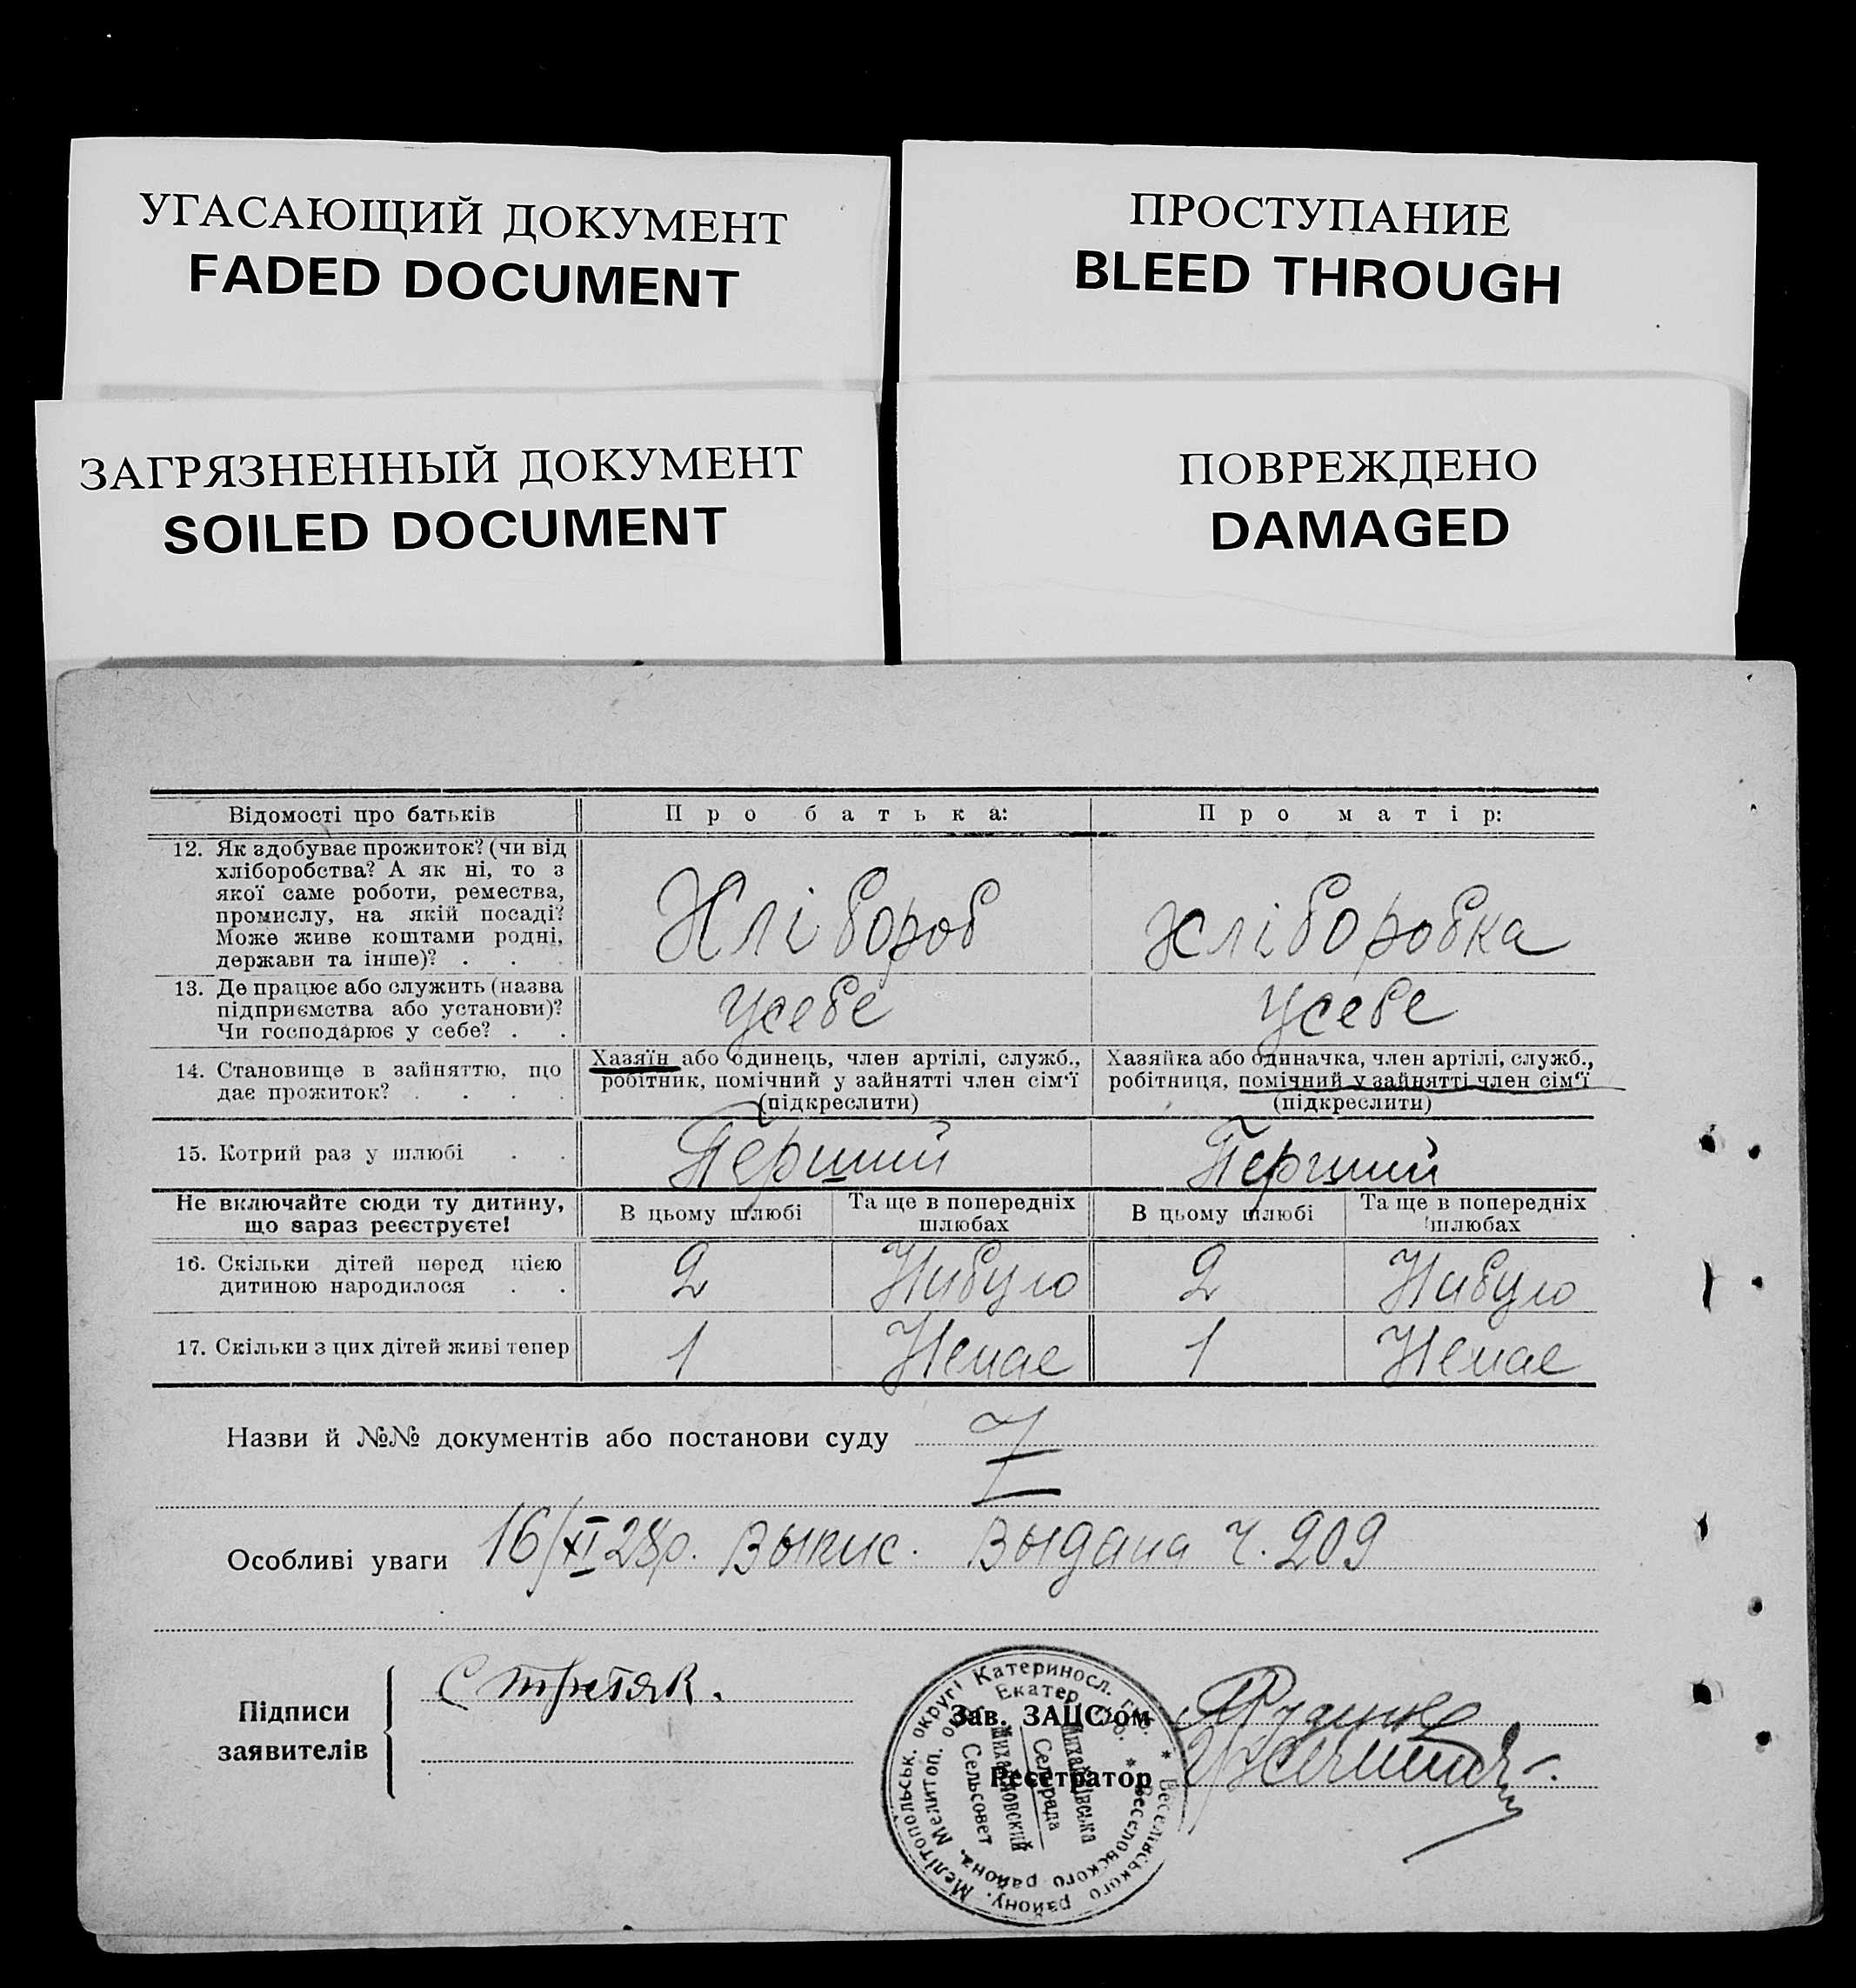 УГАСАЮЩИЙ ДОКУМЕНТ
FADED DOCUMENT
ПРОСТУПАНИЕ
BLEED THROUGH
ЗАГРЯЗНЕННЫЙ ДОКУМЕНТ
SOILED DOCUMENT
ПОВРЕЖДЕНО
DAMAGED
Відомості про батьків
Про батька:
Про матір:
12. Як здобуває прожиток? (чи від
хліборобства? А як ні, то з
якої саме роботи, ремества,
промислу, на якій посаді?
Може живе коштами родні,
держави та інше)? . . .
Хлібороб
хліборобка
13. Де працює або служить (назва
підприємства або установи)?
Чи господарює у себе? . .
Усебе
Усебе
14. Становище в зайняттю, що
дає прожиток? . . . .
Хазяїн або одинець, член артілі, служб.,
робітник, помічний у зайнятті член сім'ї
(підкреслити)
Хазяйка або одиначка, член артілі, служб.,
робітниця, помічний у зайнятті член сім'ї
(підкреслити)
15. Котрий раз у шлюбі . .
Перший
Перший
Не включайте сюди ту дитину,
що зараз реєструєте!
В цьому шлюбі
Та ще в попередніх
шлюбах
В цьому шлюбі
Та ще в попередніх
шлюбах
16. Скільки дітей перед цією
дитиною народилося . .
2
Нибуло
2
Нибуло
17. Скільки з цих дітей живі тепер
1
Немає
1
Немає
Назви й №№ документів або постанови суду
Особливі уваги 16/XI 28р. Выпис. Выдана Ч. 209
Підписи
заявителів
С Третяк.
Зав. ЗАЦС'ом
Реєстратор
Мелітопольськ. округі Катериносл. губ. * Веселівського району.
Мелитоп. окр. Екатер. губ. * Веселовского района.
Михайлівська
Сельрада
Михайловский
Сельсовет